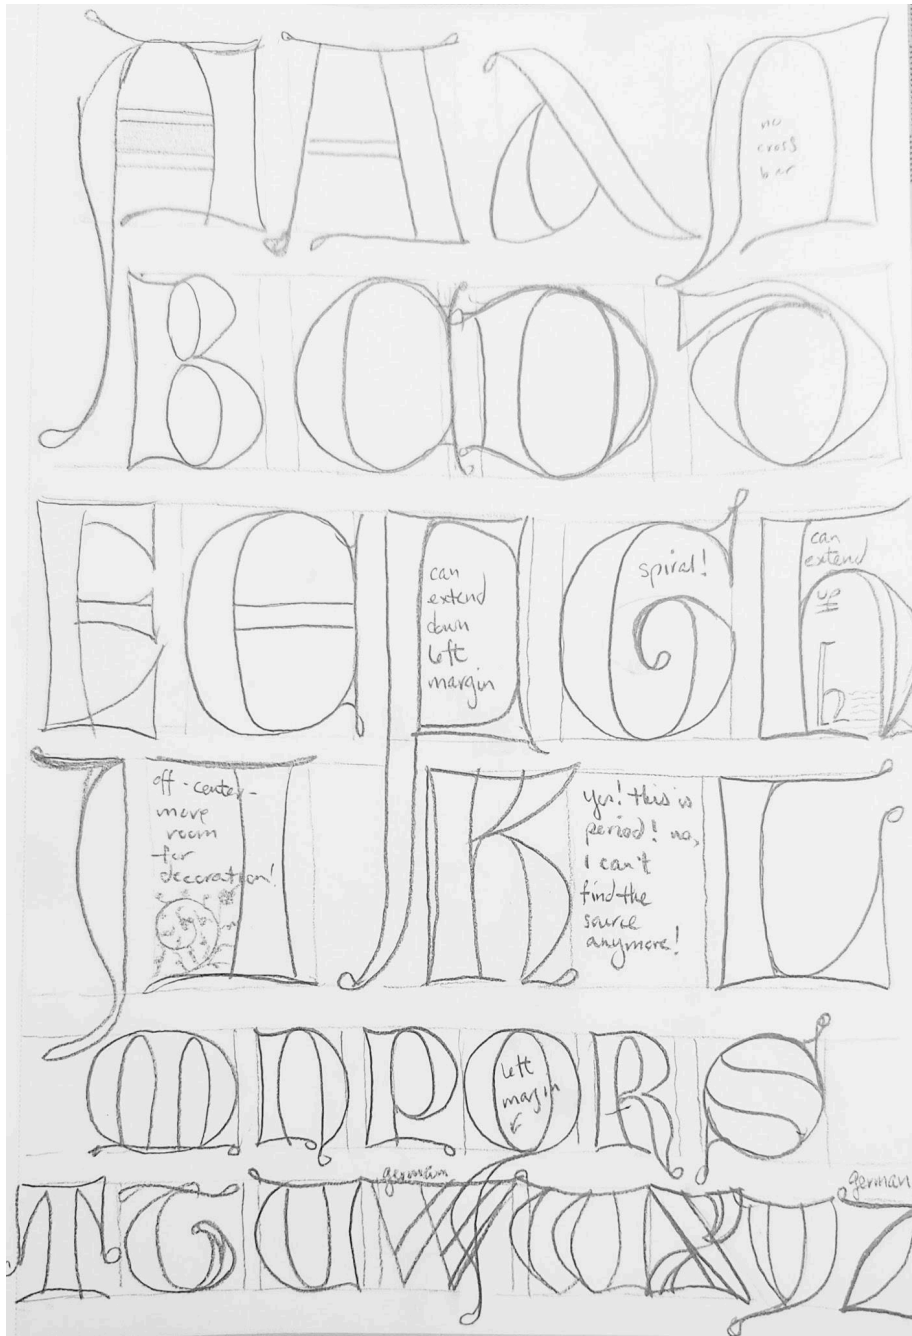 A A A A
no
cross
bar
B C D D
E E F G H
can
extend
down
left
margin
spiral!
can
extend
up
J I K L
off-center-
more
room
for
decoration!
yes! this is
period! no,
I can't
find the
source
anymore!
M N P Q R S
left
margin
T T U W V X Y Z
german
german